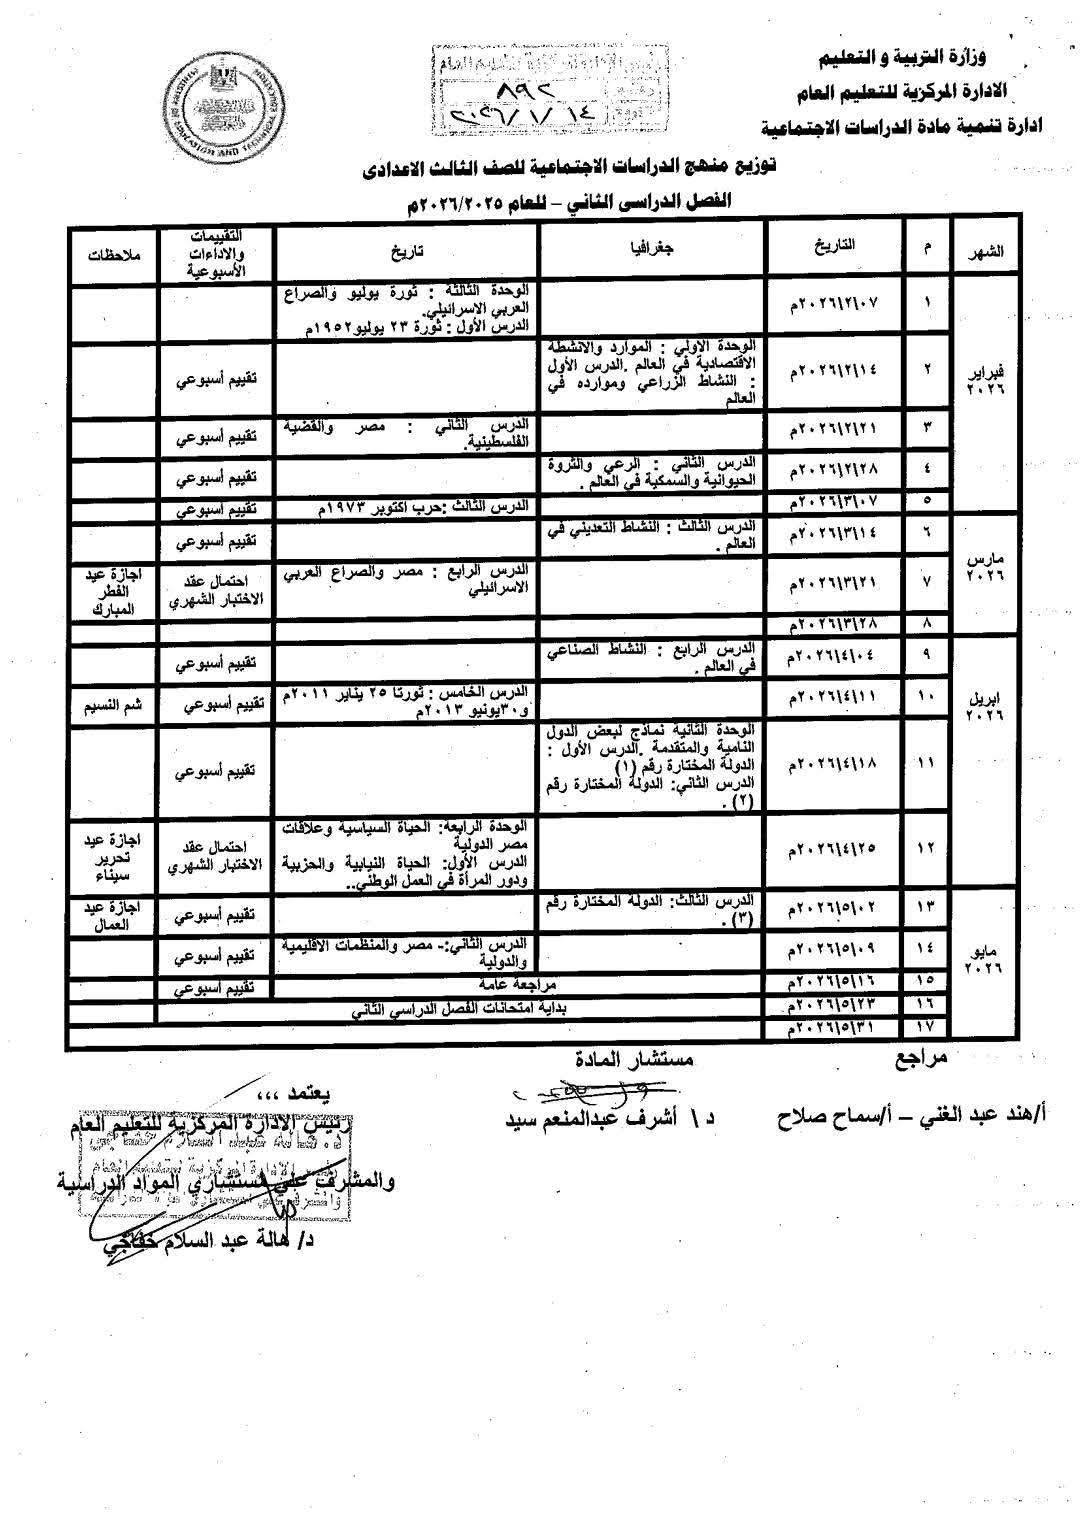 وزارة التربية و التعليم
الادارة المركزية للتعليم العام
ادارة تنمية مادة الدراسات الاجتماعية
٨٩٢
٢٠٢٦/١/١٤
MINISTRY OF EDUCATION AND TECHNICAL EDUCATION
توزيع منهج الدراسات الاجتماعية للصف الثالث الاعدادى
الفصل الدراسى الثاني – للعام ٢٠٢٦/٢٠٢٥م
الشهر م التاريخ جغرافيا تاريخ التقييمات والاداءات الأسبوعية ملاحظات
فبراير ٢٠٢٦
١ ٢٠٢٦/٢/٠٧م الوحدة الثالثة : ثورة يوليو والصراع
العربي الاسرائيلي.
الدرس الأول : ثورة ٢٣ يوليو١٩٥٢م
٢ ٢٠٢٦/٢/١٤م الوحدة الاولي : الموارد والانشطة
الاقتصادية في العالم .الدرس الأول
: النشاط الزراعي وموارده في
العالم
تقييم أسبوعي
٣ ٢٠٢٦/٢/٢١م الدرس الثاني : مصر والقضية
الفلسطينية.
تقييم أسبوعي
٤ ٢٠٢٦/٢/٢٨م الدرس الثاني : الرعي والثروة
الحيوانية والسمكية في العالم .
تقييم أسبوعي
٥ ٢٠٢٦/٣/٠٧م الدرس الثالث :حرب اكتوبر ١٩٧٣م تقييم أسبوعي
مارس ٢٠٢٦
٦ ٢٠٢٦/٣/١٤م الدرس الثالث : النشاط التعديني في
العالم .
تقييم أسبوعي
٧ ٢٠٢٦/٣/٢١م الدرس الرابع : مصر والصراع العربي
الاسرائيلي
احتمال عقد
الاختبار الشهري
اجازة عيد
الفطر
المبارك
٨ ٢٠٢٦/٣/٢٨م
ابريل ٢٠٢٦
٩ ٢٠٢٦/٤/٠٤م الدرس الرابع : النشاط الصناعي
في العالم .
تقييم أسبوعي
١٠ ٢٠٢٦/٤/١١م الدرس الخامس : ثورتا ٢٥ يناير ٢٠١١م
و٣٠يونيو ٢٠١٣م
تقييم أسبوعي شم النسيم
١١ ٢٠٢٦/٤/١٨م الوحدة الثانية نماذج لبعض الدول
النامية والمتقدمة .الدرس الأول :
الدولة المختارة رقم (١)
الدرس الثاني: الدولة المختارة رقم
(٢) .
تقييم أسبوعي
١٢ ٢٠٢٦/٤/٢٥م الوحدة الرابعة: الحياة السياسية وعلاقات
مصر الدولية
الدرس الأول: الحياة النيابية والحزبية
ودور المرأة في العمل الوطني..
احتمال عقد
الاختبار الشهري
اجازة عيد
تحرير
سيناء
مايو ٢٠٢٦
١٣ ٢٠٢٦/٥/٠٢م الدرس الثالث: الدولة المختارة رقم
(٣) .
تقييم أسبوعي
اجازة عيد
العمال
١٤ ٢٠٢٦/٥/٠٩م الدرس الثاني:- مصر والمنظمات الاقليمية
والدولية
تقييم أسبوعي
١٥ ٢٠٢٦/٥/١٦م مراجعة عامة تقييم أسبوعي
١٦ ٢٠٢٦/٥/٢٣م بداية امتحانات الفصل الدراسي الثاني
١٧ ٢٠٢٦/٥/٣١م
مراجع
مستشار المادة
أ/هند عبد الغني – أ/سماح صلاح
د \ أشرف عبدالمنعم سيد
يعتمد ،،،
رئيس الادارة المركزية للتعليم العام
والمشرف علي مستشاري المواد الدراسية
د/ هالة عبد السلام خفاجي